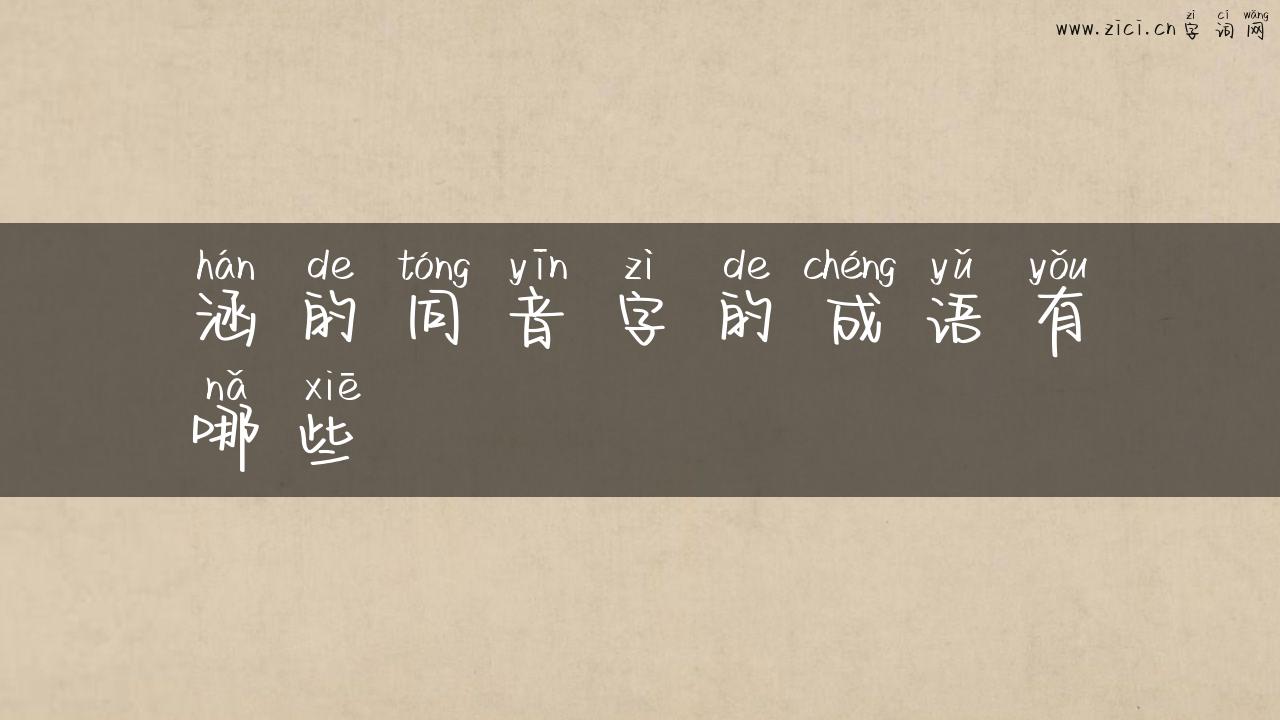 zì cí wǎng
www.zici.cn 字词网
hán de tóng yīn zì de chéng yǔ yǒu
涵的同音字的成语有
nǎ xiē
哪些